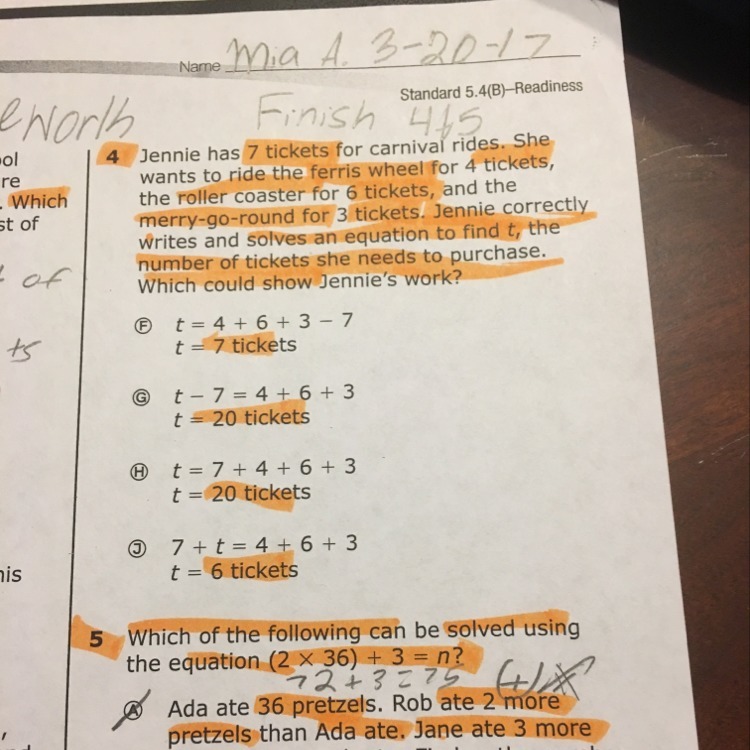 Name Mia A. 3-20-17
Standard 5.4(B)–Readiness
Finish 4&5
ool
re
. Which
st of
of
ts
his
4 Jennie has 7 tickets for carnival rides. She
wants to ride the ferris wheel for 4 tickets,
the roller coaster for 6 tickets, and the
merry-go-round for 3 tickets. Jennie correctly
writes and solves an equation to find t, the
number of tickets she needs to purchase.
Which could show Jennie's work?
Ⓕ t = 4 + 6 + 3 − 7
t = 7 tickets
Ⓖ t − 7 = 4 + 6 + 3
t = 20 tickets
Ⓗ t = 7 + 4 + 6 + 3
t = 20 tickets
Ⓙ 7 + t = 4 + 6 + 3
t = 6 tickets
5 Which of the following can be solved using
the equation (2 × 36) + 3 = n?
72+3=75
Ⓐ Ada ate 36 pretzels. Rob ate 2 more
pretzels than Ada ate. Jane ate 3 more